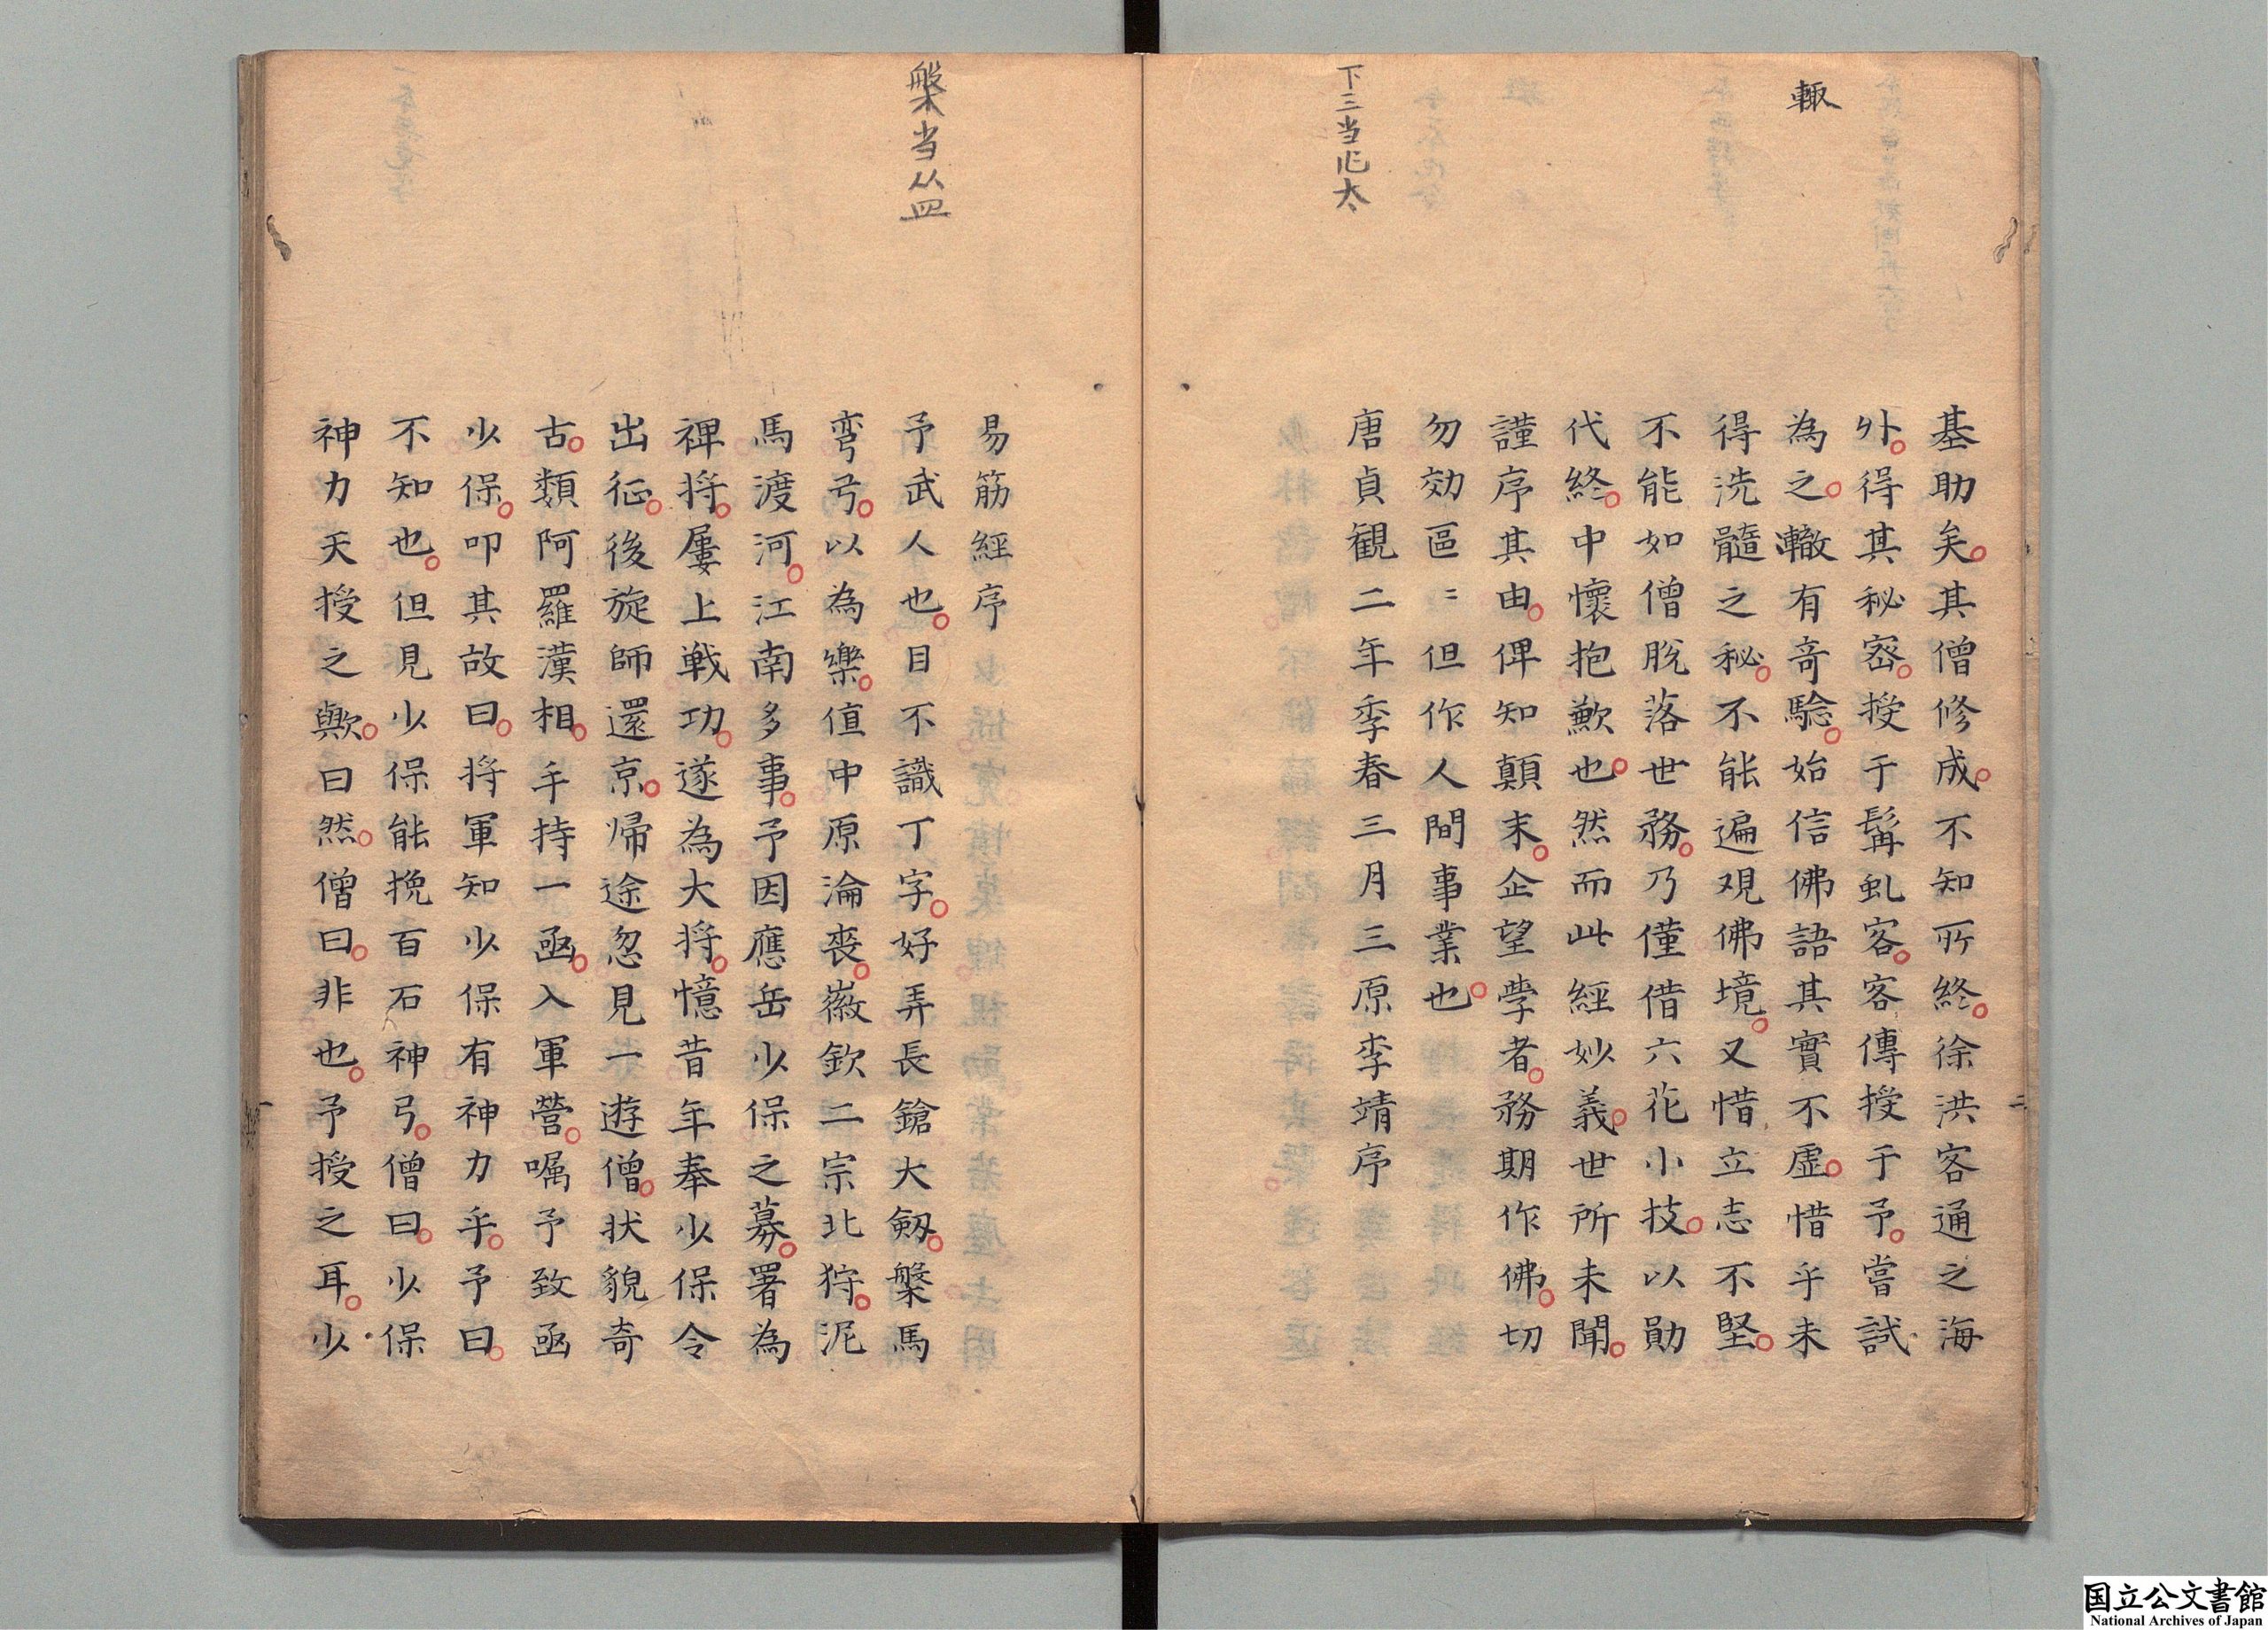 輙
下三当作太
基助矣其僧修成不知所終徐洪客遇之海
外得其秘密授于髯虬客客傳授于予嘗試
為之轍有奇驗始信佛語其實不虚惜乎未
得洗髓之秘不能遍观佛境又惜立志不堅
不能如僧脫落世務乃僅借六花小技以勛
代終中懷抱歉也然而此經妙義世所未聞
謹序其由俾知顛末企望學者務期作佛切
勿効區〻但作人間事業也
唐貞観二年季春三月三原李靖序
槃当从皿
易筋經序
予武人也目不識丁字好弄長鎗大劔槃馬
弯弓以為樂值中原淪丧徽欽二宗北狩泥
馬渡河江南多事予因應岳少保之募署為
裨将屢上戦功遂為大将憶昔年奉少保令
出征後旋師還京帰途忽見一遊僧状貌奇
古類阿羅漢相手持一函入軍營嘱予致函
少保叩其故曰将軍知少保有神力乎予曰
不知也但見少保能挽百石神弓僧曰少保
神力天授之歟曰然僧曰非也予授之耳少
二
国立公文書館
National Archives of Japan